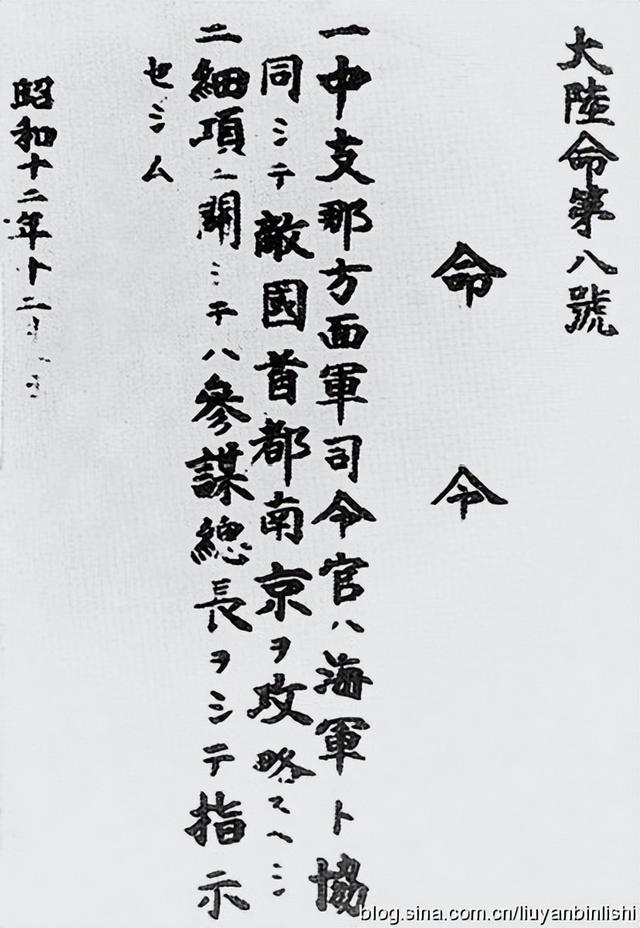 大陸命第八號
命令
一中支那方面軍司令官ハ海軍ト協
同シテ敵國首都南京ヲ攻略スヘシ
二細項ニ關シテハ參謀總長ヲシテ指示
セシム
昭和十二年十二
blog.sina.com.cn/liuyanbinlishi